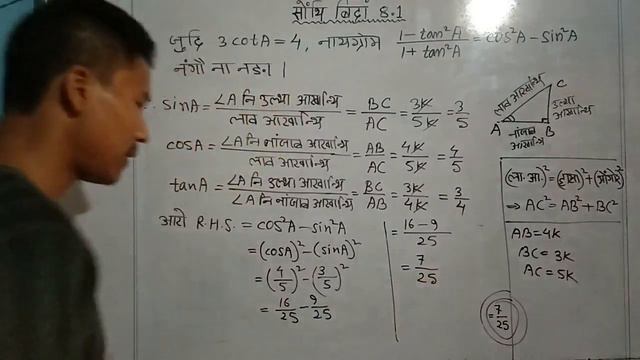 सोंथि बिदों 8.1
जुदि 3 cotA = 4, नायग्रोम (1 - tan²A)/(1 + tan²A) = cos²A - sin²A
नंगौ ना नङा।
sinA = ∠A नि उल्था आखान्थि/लाव आखान्थि = BC/AC = 3K/5K = 3/5
cosA = ∠A नि नांजाब आखान्थि/लाव आखान्थि = AB/AC = 4K/5K = 4/5
tanA = ∠A नि उल्था आखान्थि/∠A नि नांजाब आखान्थि = BC/AB = 3K/4K = 3/4
आरो R.H.S. = cos²A - sin²A
= (cosA)² - (sinA)²
= (4/5)² - (3/5)²
= 16/25 - 9/25
= (16 - 9)/25
= 7/25
लाव आखान्थि
C
उल्था
आखान्थि
A
B
नांजाब
आखान्थि
(ला. आ.)² =
⇒ AC² = AB² + BC²
AB = 4K
BC = 3K
AC = 5K
= 7/25